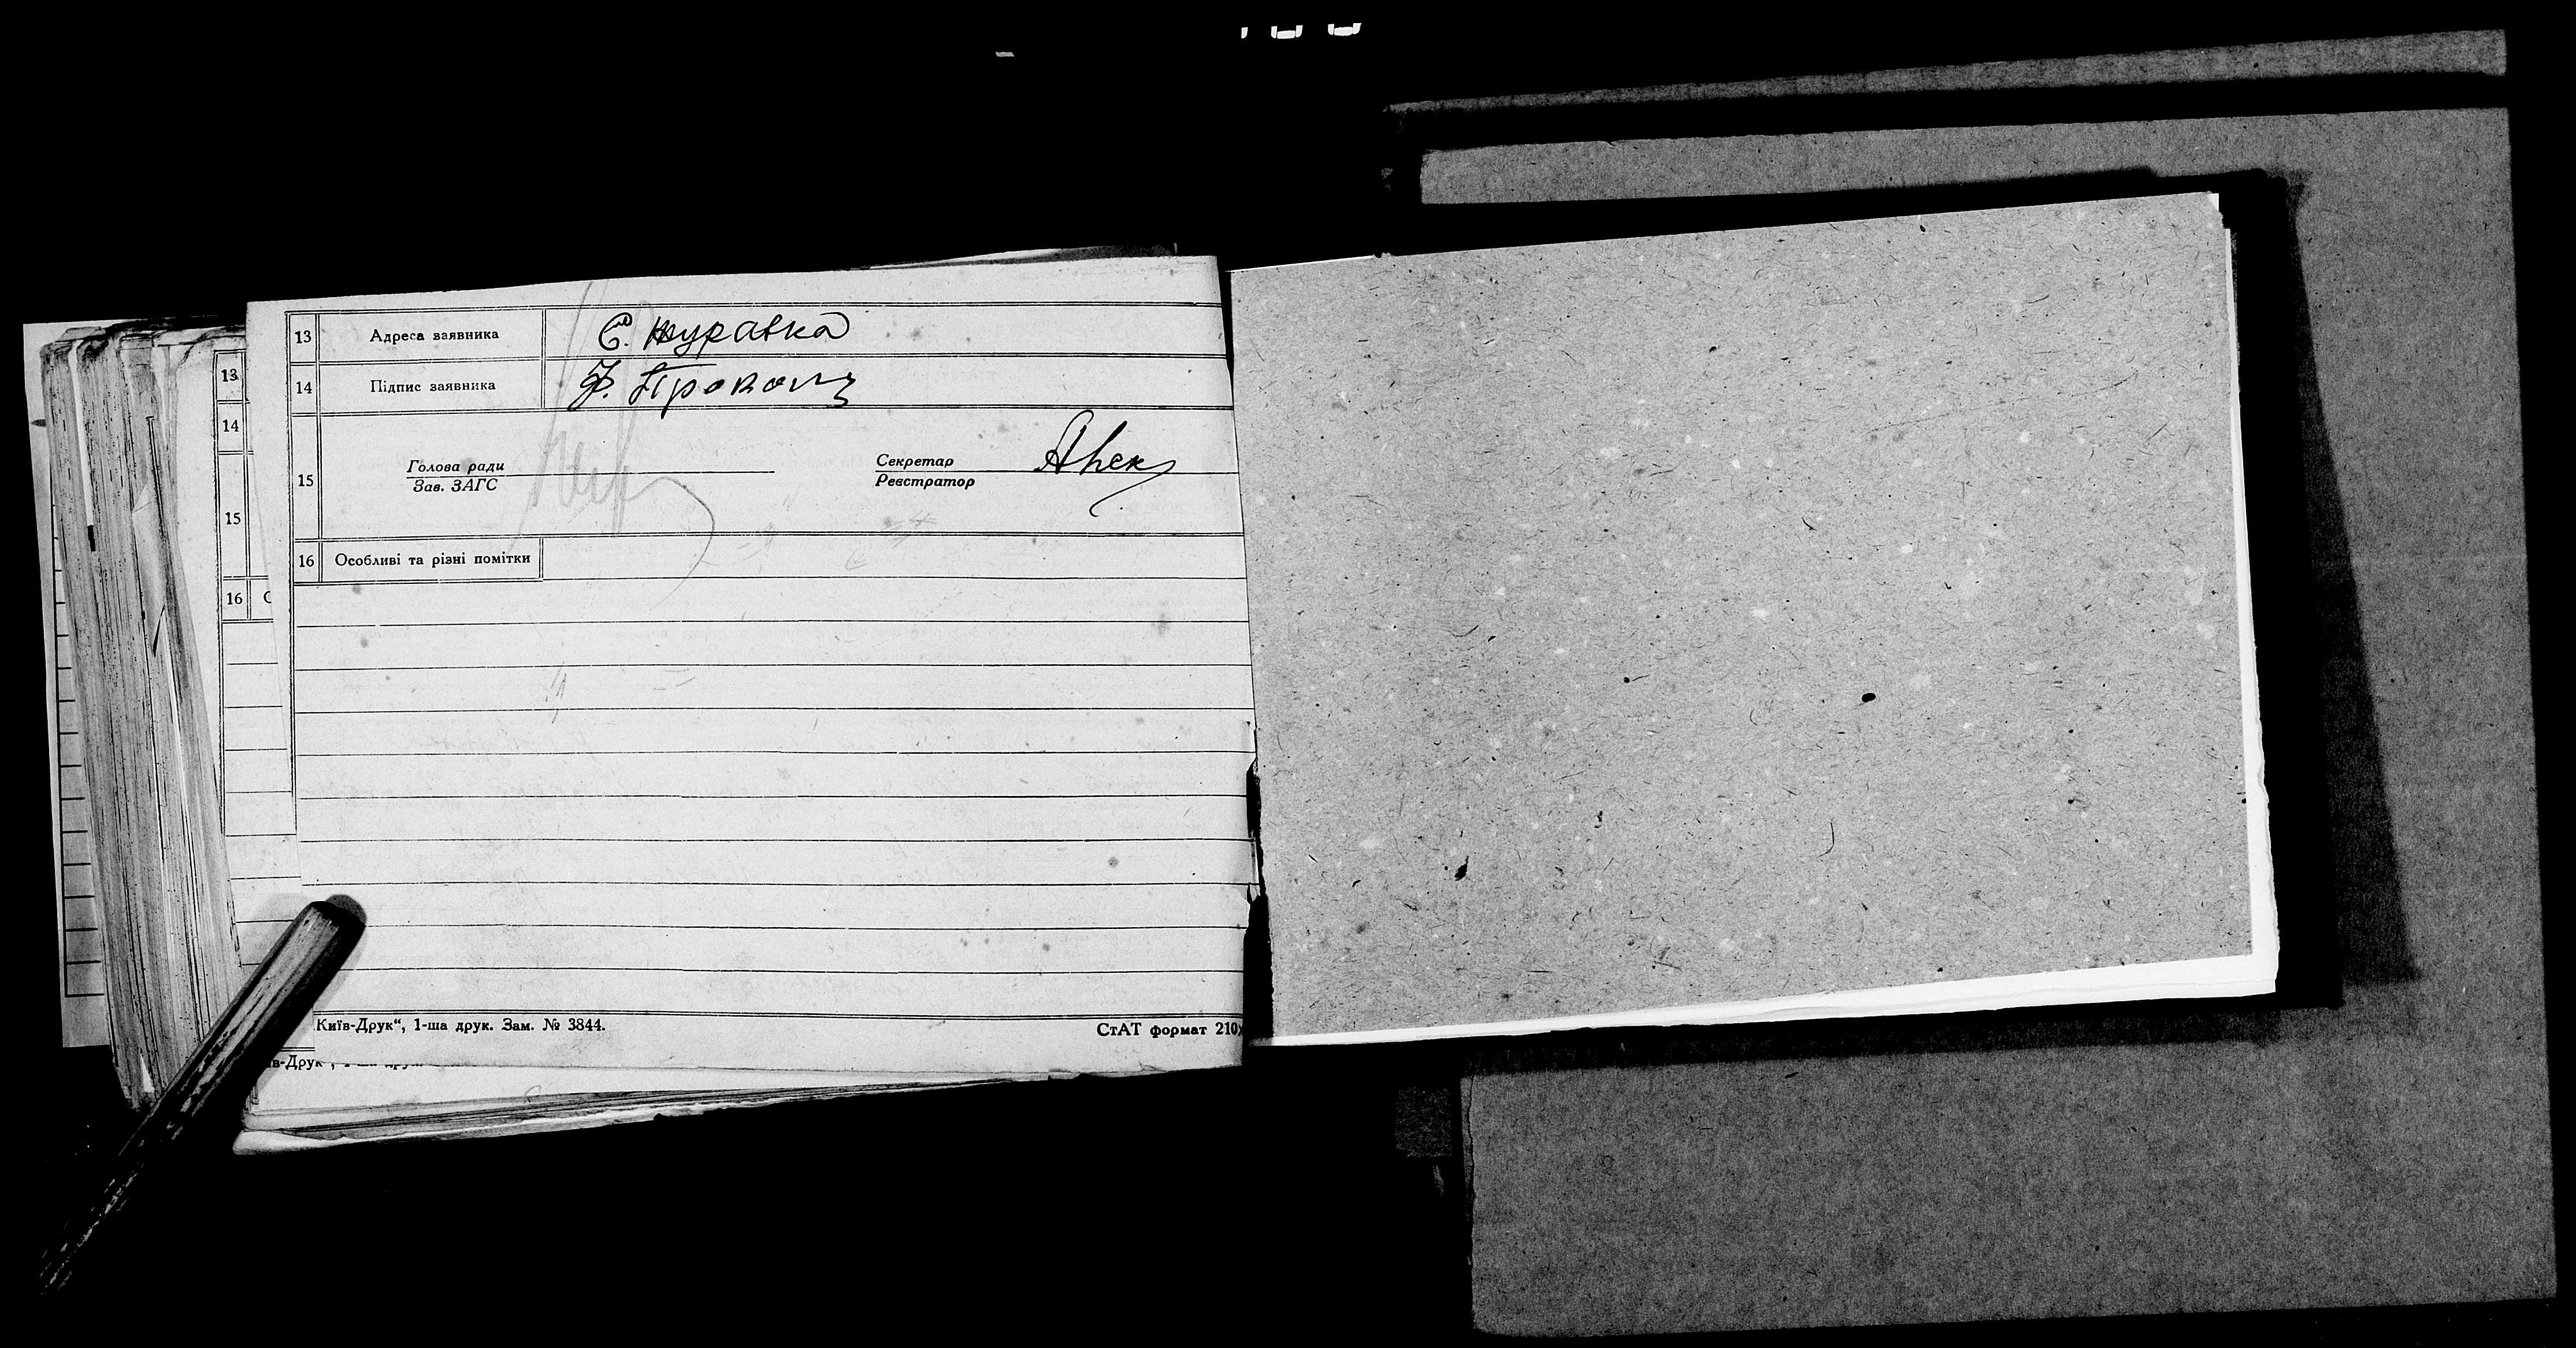 13 Адреса заявника С. Журавка
14 Підпис заявника Ф. Прокопц
15 Голова ради Секретар
Зав. ЗАГС Реєстратор
16 Особливі та різні помітки
Київ-Друк“, 1-ша друк. Зам. № 3844. СтАТ формат 210х
13
14
15
16 С
ів-Друк